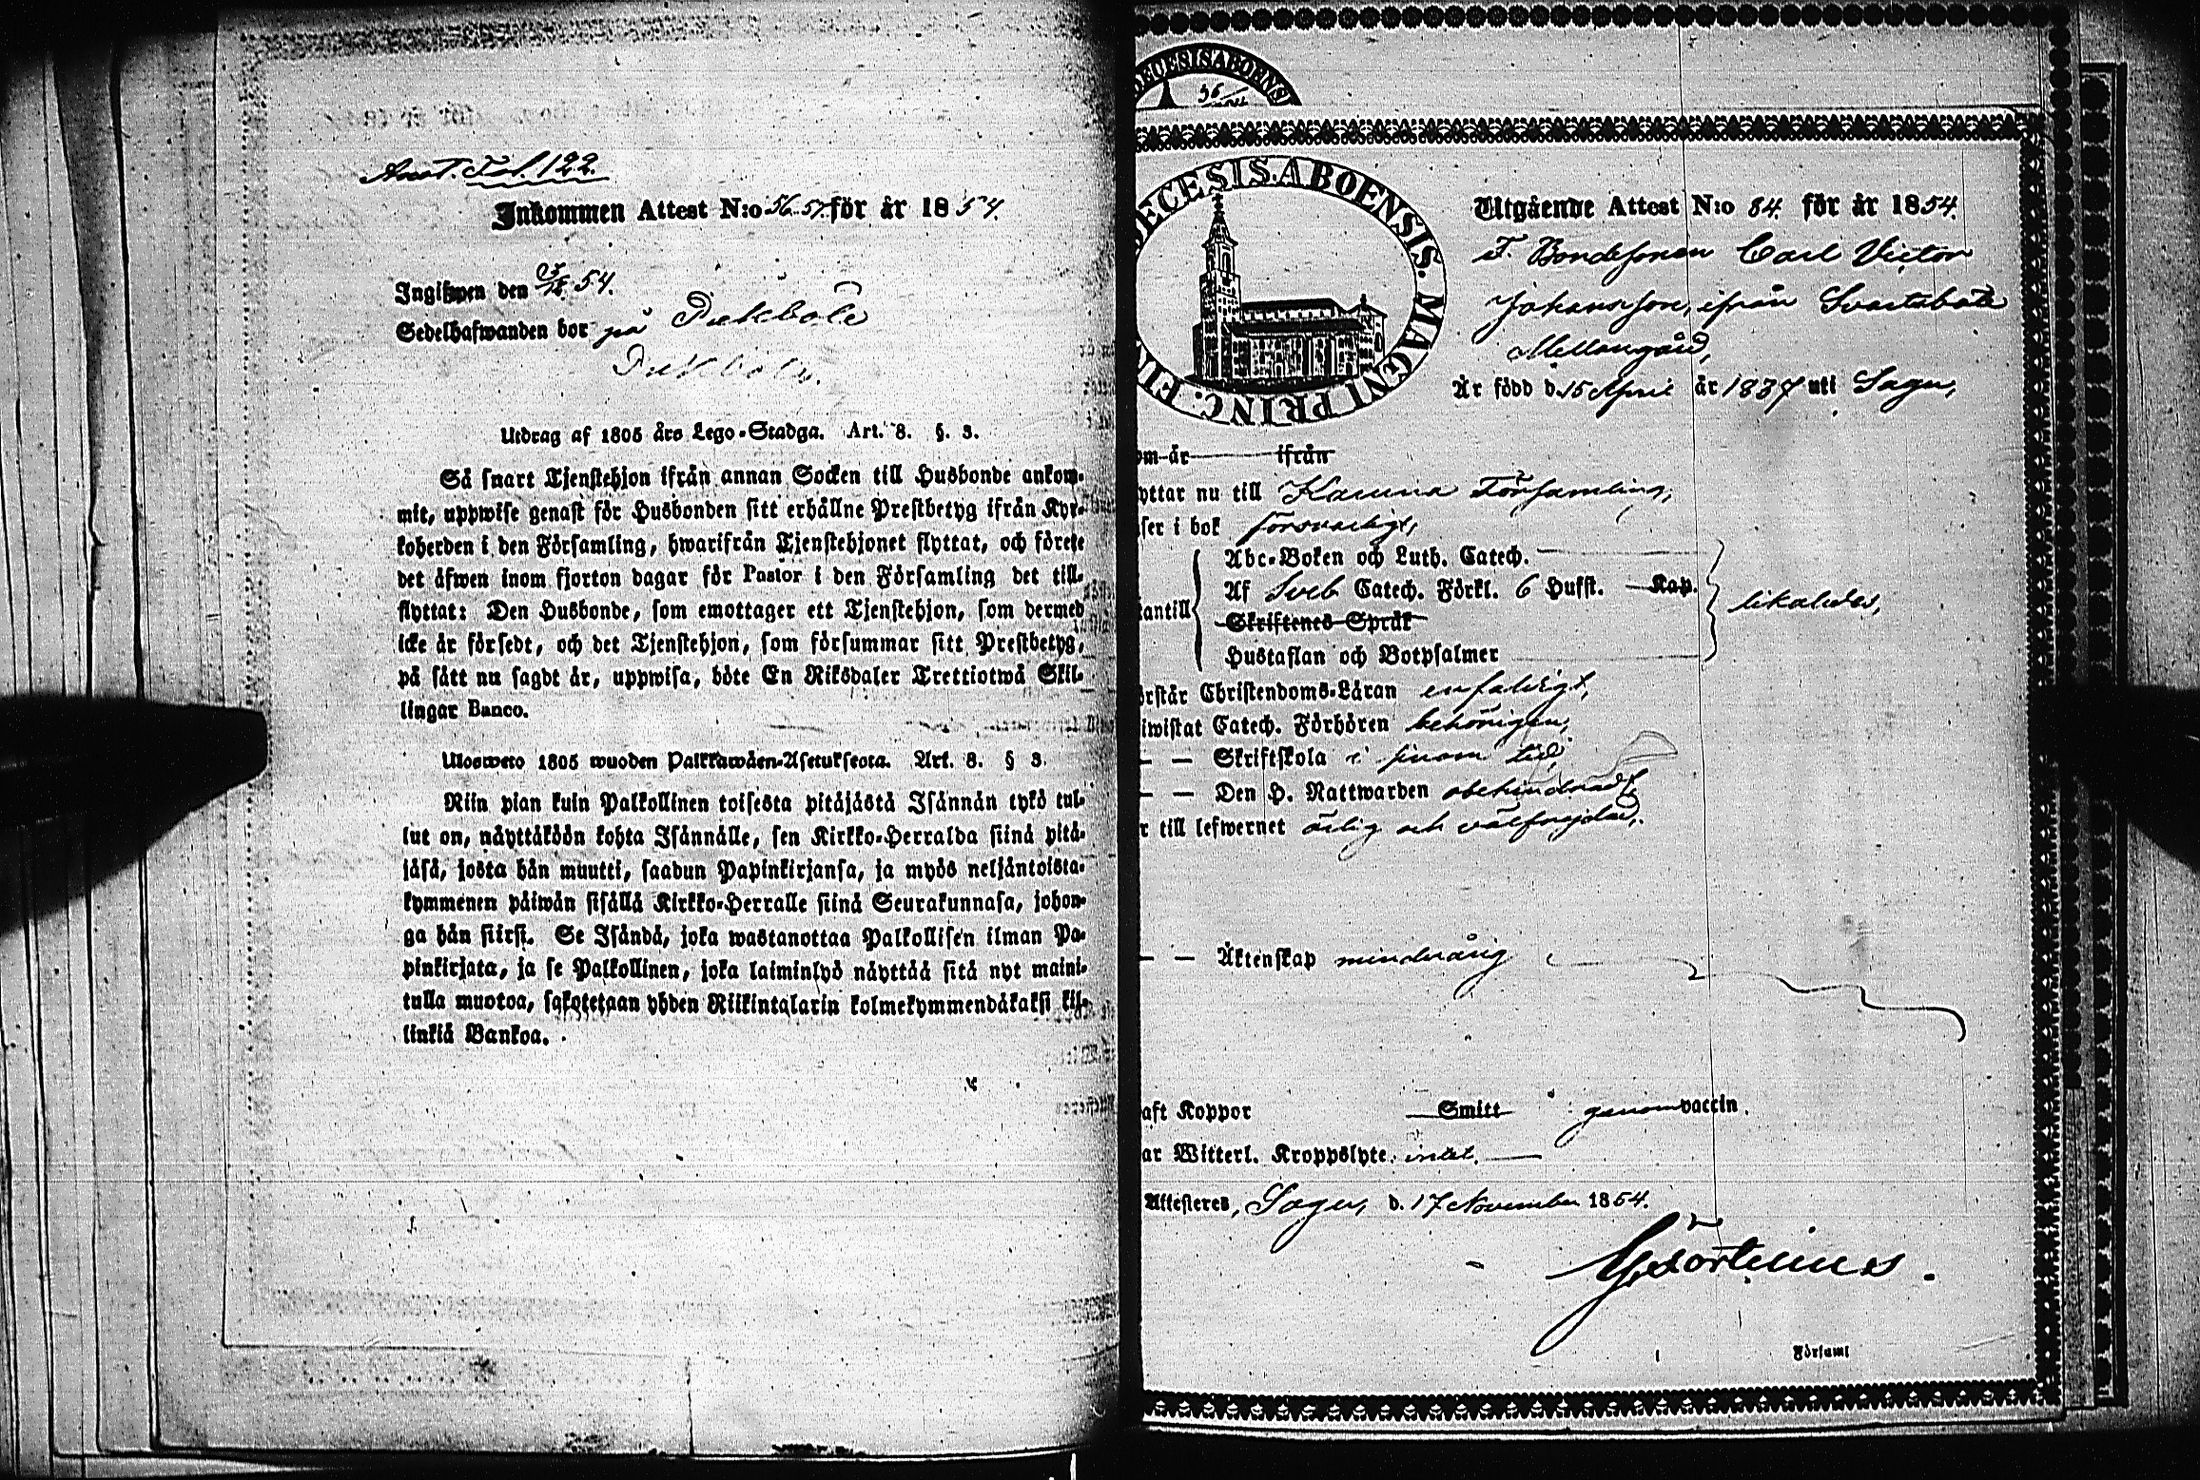 Annot. Fol. 122.
Inkommen Attest N:o 56-57. för år 1854.
Ingifwen den 3/12 54.
Sedelhafwanden bor på
Utdrag af 1805 års Lego-Stadga. Art. 8. §. 3.
Så snart Tjenstehjon ifrån annan Socken till Husbonde ankom-
mit, uppwise genast för Husbonden sitt erhållne Prestbetyg ifrån Kyr-
koherden i den Församling, hwarifrån Tjenstehjonet flyttat, och förete
det äfwen inom fjorton dagar för Pastor i den Församling det till-
flyttat: Den Husbonde, som emottager ett Tjenstehjon, som dermed
icke är försedt, och det Tjenstehjon, som försummar sitt Prestbetyg,
på sätt nu sagdt är, uppwisa, böte En Riksdaler Trettiotwå Skil-
lingar Banco.
Ulosweto 1805 wuoden Palkkawäen-Asetuksesta. Art. 8. § 3.
Niin pian kuin Palkollinen toisesta pitäjästä Isännän tykö tul-
lut on, näyttäköön kohta Isännälle, sen Kirkko-Herralda siinä pitä-
jäsä, josta hän muutti, saadun Papinkirjansa, ja myös neljäntoista-
kymmenen päiwän sisällä Kirkko-Herralle siinä Seurakunnasa, johon-
ga hän siirst. Se Isändä, joka wastanottaa Palkollisen ilman Pa-
pinkirjata, ja se Palkollinen, joka laiminlyö näyttää sitä nyt maini-
tulla muotoa, sakotetaan yhden Riikintalarin kolmekymmendäkaksi kil-
linkiä Bankoa.
DECESIS ABOENSI
56
DECESIS. ABOENSIS. MAGNI PRINC. FI
Utgående Attest N:o 84. för år 1854.
F. Bondesonen Carl Victor
Johansson, ifrån Svartabote
Mellangård,
Är född d. 15 April år 1837 uti Sagu,
om år ifrån
yttar nu till Karuna Församling,
ser i bok försvarligt,
Abc-Boken och Luth. Catech.
Af Sveb Catech. Förkl. 6 Hufst. Kap.
antill likaledes,
Skriftenes Språk
Hustaflan och Botpsalmer
örstår Christendoms-Läran enfaldigt,
iwistat Catech. Förhören behörigen,
— — Skriftskola i sinom tid,
— — Den H. Nattwarden obehindradt,
r till lefwernet ärlig och välfrejdad.
— — Äktenskap minderårig
aft Koppor Smitt genom vaccin.
ar Witterl. Kroppslyte. intet.
Attesteres, Sagu, d. 17 November 1854.
Församl